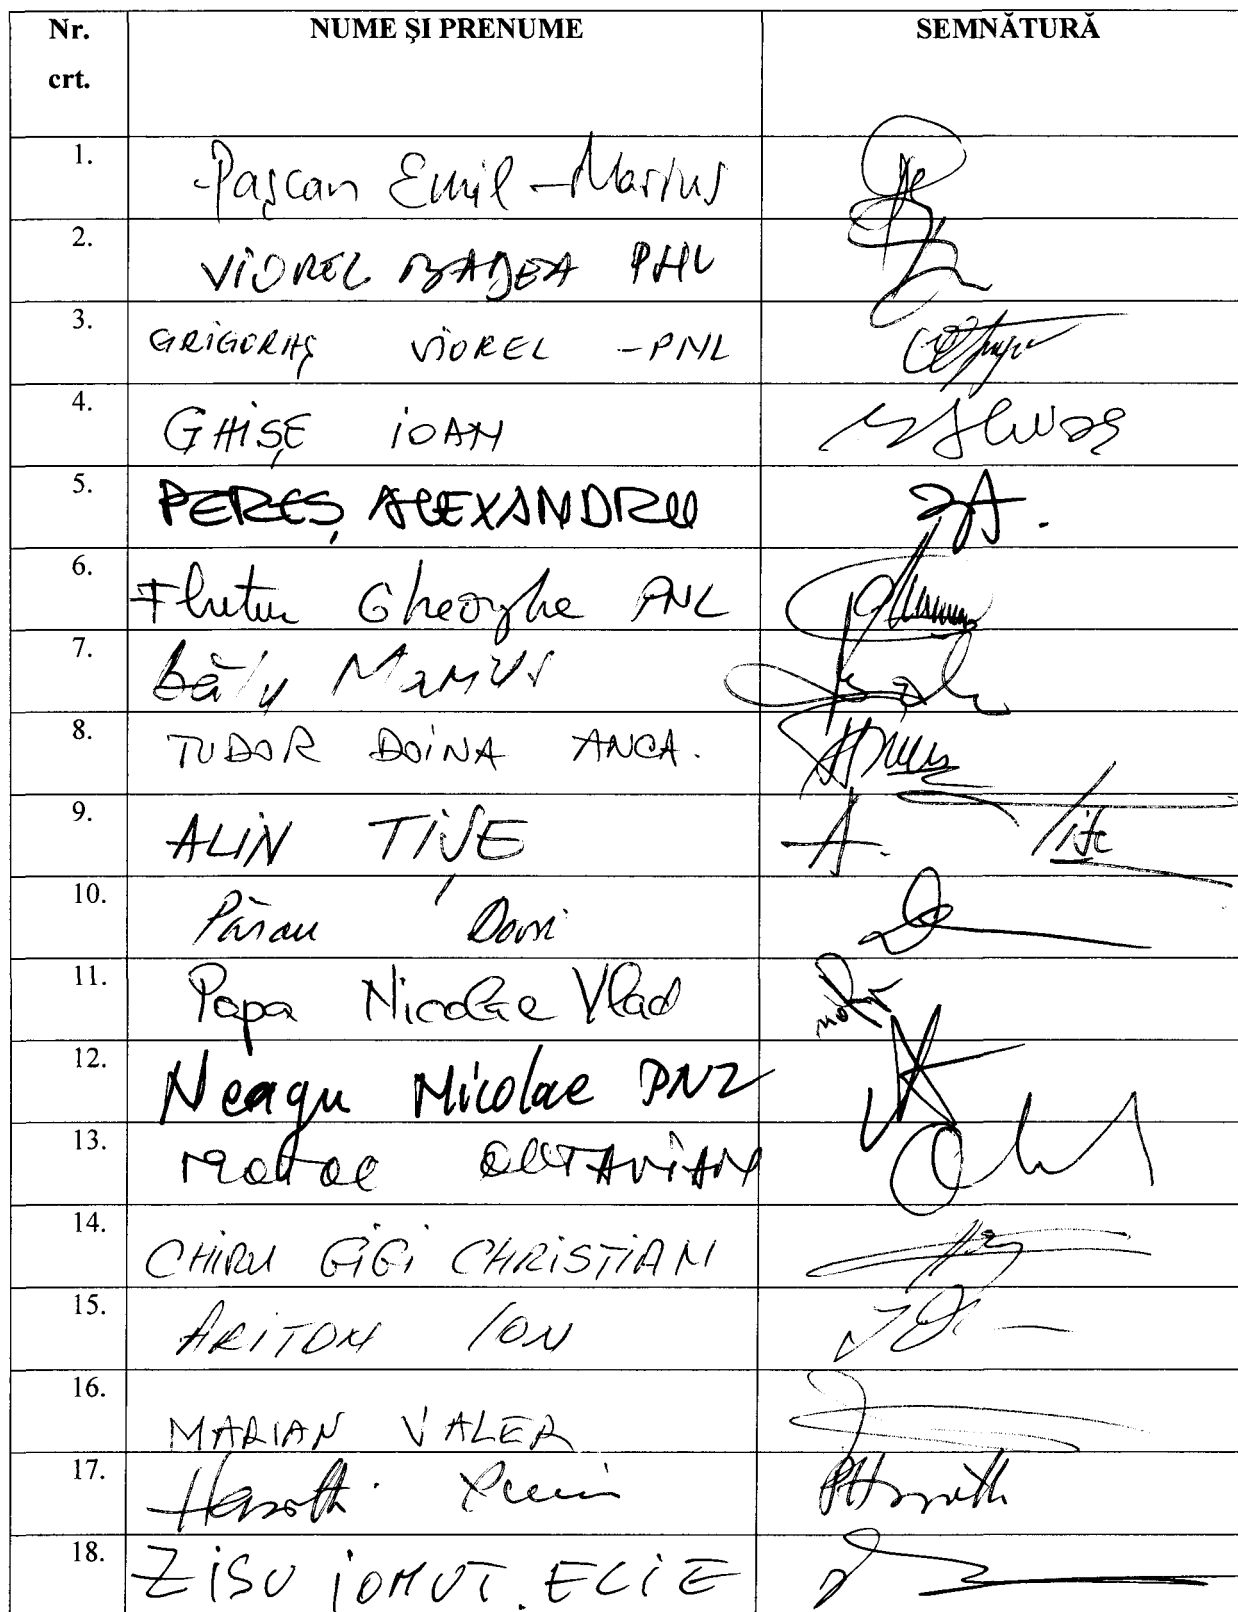 Nr. crt. NUME ŞI PRENUME SEMNĂTURĂ
1. Paşcan Emil-Marius
2. VIOREL BADEA PNL
3. GRIGORAŞ VIOREL -PNL
4. GHIŞE IOAN
5. PEREŞ ALEXANDRU
6. Flutur Gheorghe PNL
7. Marius
8. TUDOR DOINA ANCA.
9. ALIN TIŞE
10. Pârau
11. Popa Nicolae Vlad
12. Neagu Nicolae PNL
13. Motoc OCTAVIAN
14. CHIRU GIGI CHRISTIAN
15. ARITON ION
16. MARIAN VALER
17. Horvath
18. ZISU IONUT. ELIE